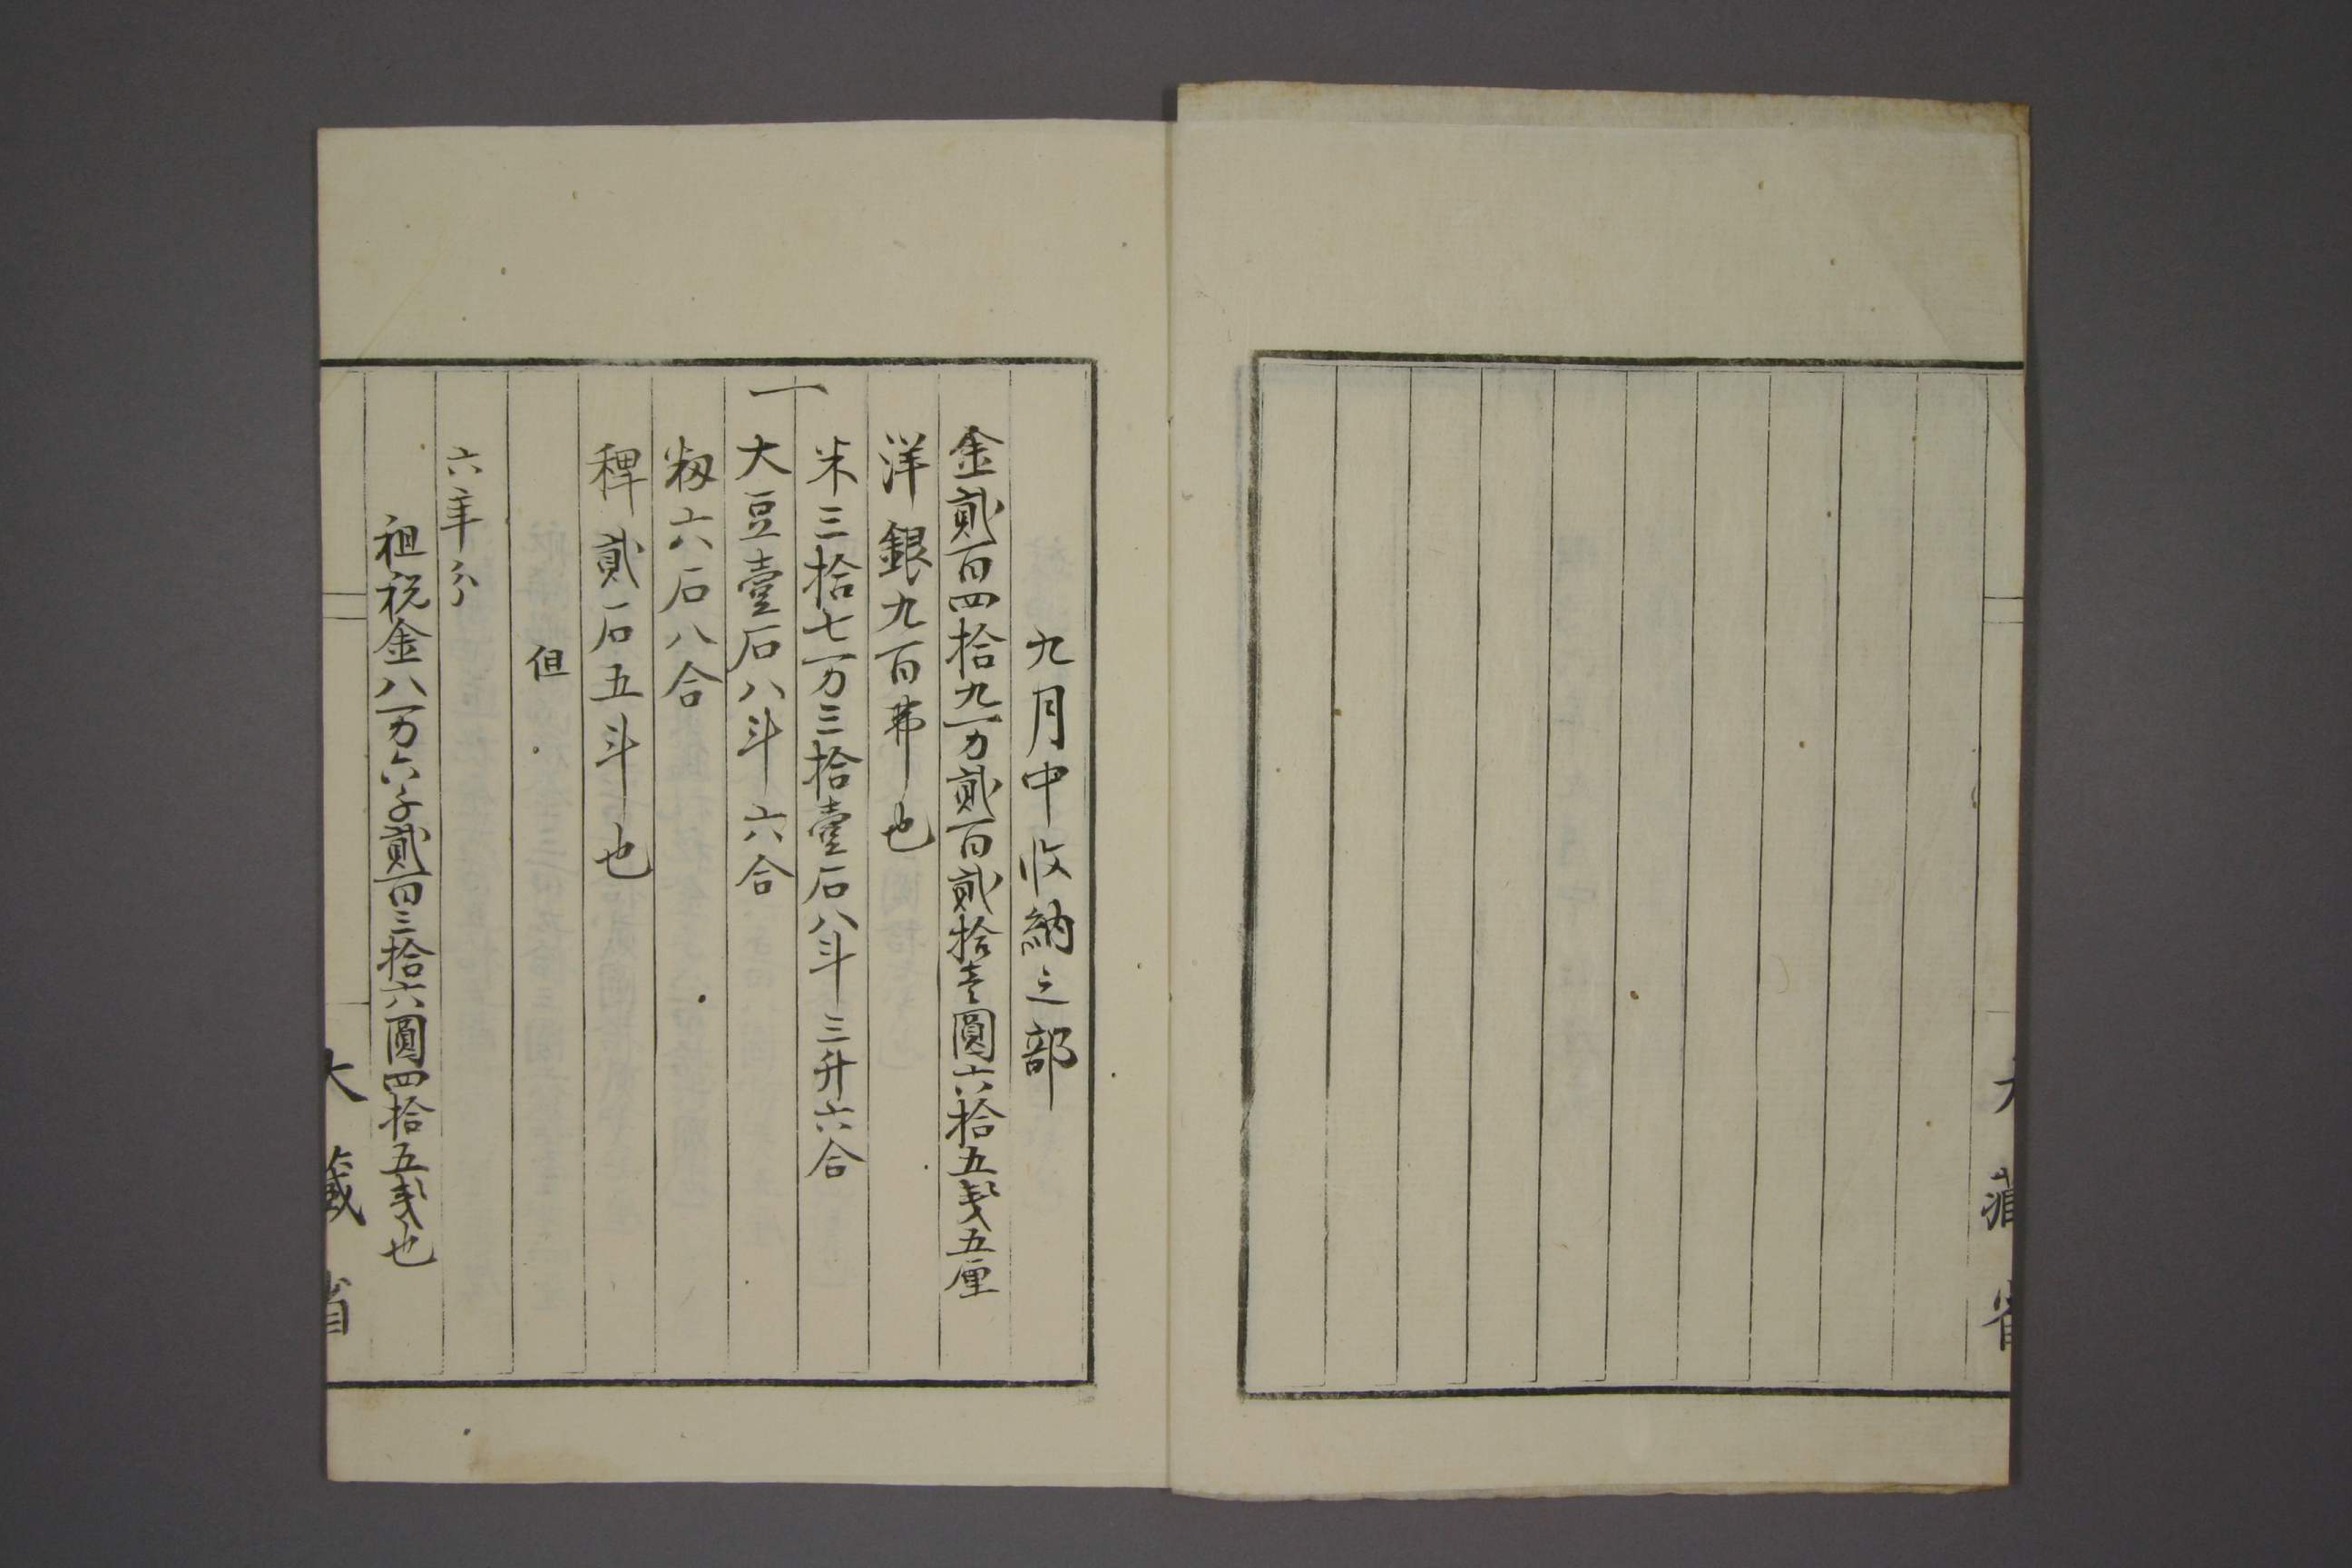 九月中收納之部
金貳百四拾九万貳百貳拾壹圓六拾五戔五厘
洋銀九百弗也
一
米三拾七万三拾壹石八斗三升六合
大豆壹石八斗六合
籾六石八合
稗貳石五斗也
但
六年分
租税金八万六千貳百三拾六圓四拾五戔也
大藏省
大藏省